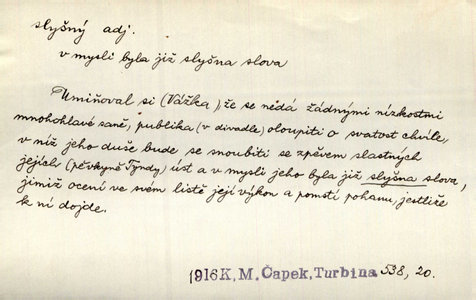 slyšný adj.
v mysli byla již slyšna slova
Umiňoval si (Vážka), že se nedá žádnými nízkostmi
mnohohlavé saně, publika (v divadle) oloupiti o svatost chvíle,
v níž jeho duše bude se snoubiti se zpěvem slastných
jejích (pěvkyně Tyndy) úst a v mysli jeho byla již slyšna slova,
jimiž ocení ve svém listě její výkon a pomstí pohanu, jestliže
k ní dojde.
1916 K. M. Čapek, Turbina 538, 20.